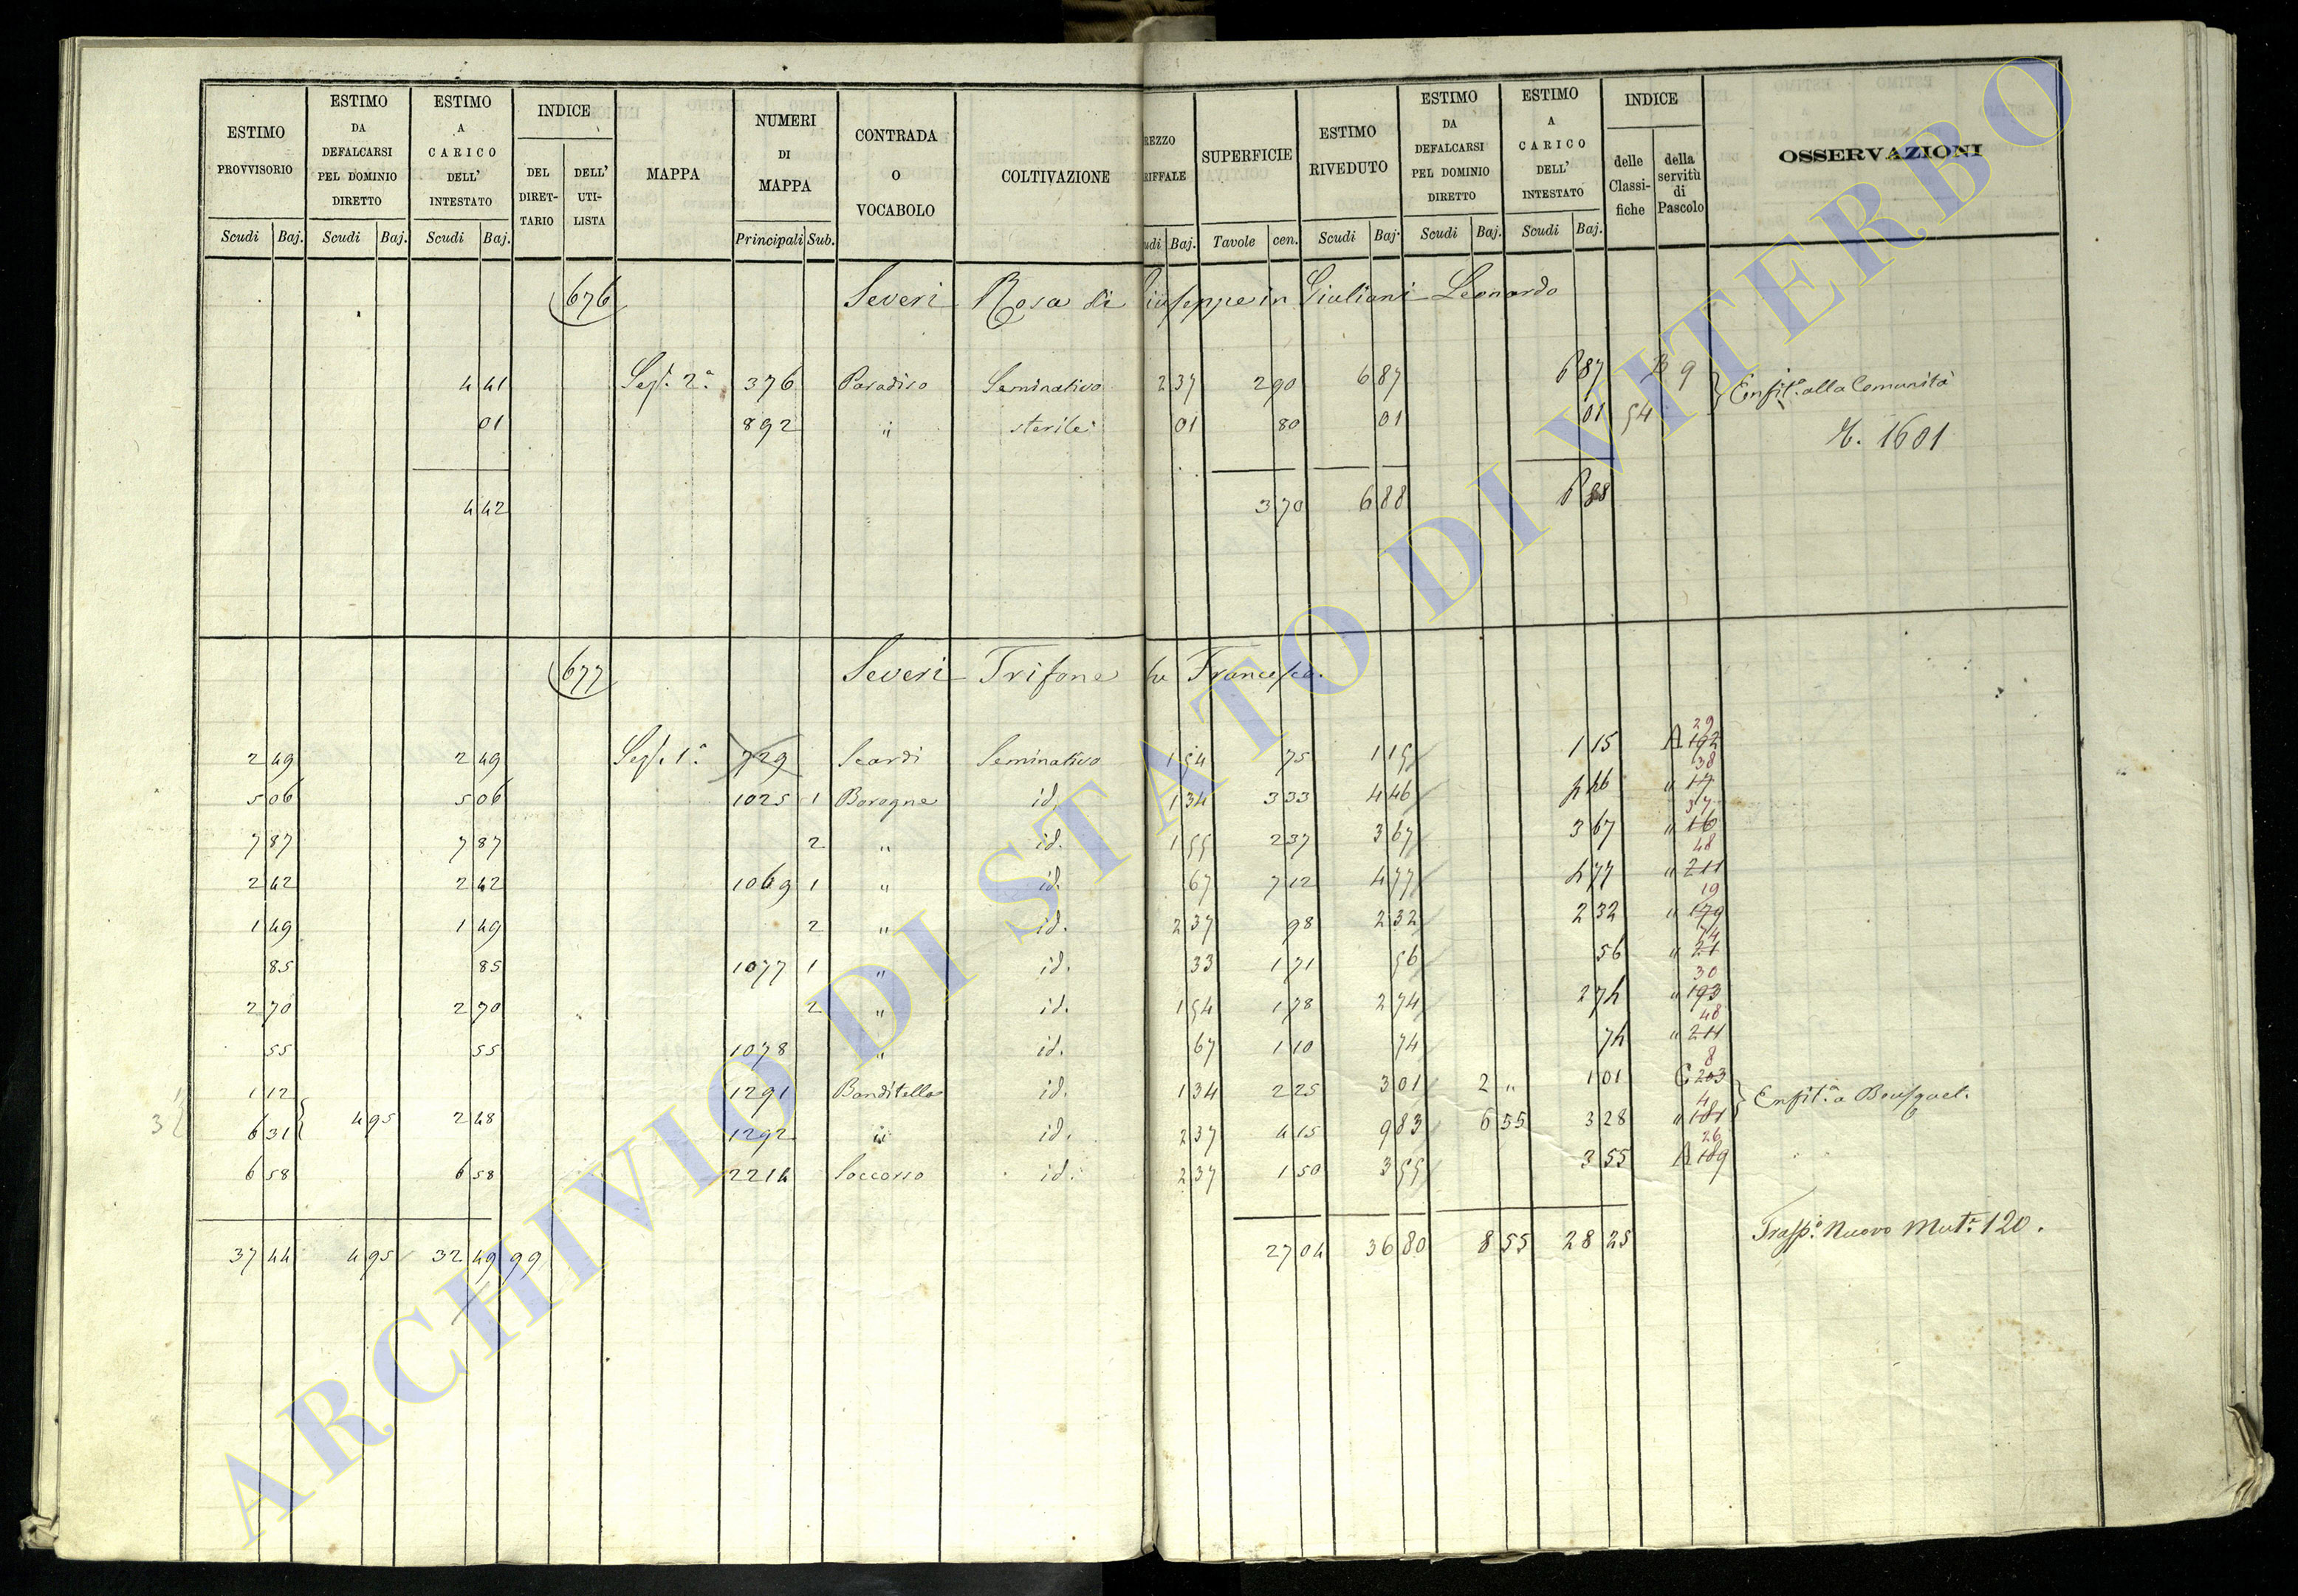 ESTIMO PROVVISORIO | ESTIMO DA DEFALCARSI PEL DOMINIO DIRETTO | ESTIMO A CARICO DELL' INTESTATO | INDICE | MAPPA | NUMERI DI MAPPA | CONTRADA O VOCABOLO | COLTIVAZIONE | REZZO RIFFALE | SUPERFICIE | ESTIMO RIVEDUTO | ESTIMO DA DEFALCARSI PEL DOMINIO DIRETTO | ESTIMO A CARICO DELL' INTESTATO | INDICE | OSSERVAZIONI
DEL DIRET-TARIO | DELL' UTI-LISTA | delle Classi-fiche | della servitù di Pascolo
Scudi | Baj. | Scudi | Baj. | Scudi | Baj. | Principali | Sub. | udi | Baj. | Tavole | cen. | Scudi | Baj. | Scudi | Baj. | Scudi | Baj.
676 Severi Rosa di Giuseppe in Giuliani Leonardo
4 41 | Sez. 2a. | 376 | Paradiso | Seminativo | 2 37 | 2 90 | 6 87 | 6 87 | B 9 | Enfit. alla Comunità
01 | 892 | " | sterile | 01 | 80 | 01 | 01 | 54 | 1601
4 42 | 3 70 | 6 88 | 6 88
677 Severi Trifone fu Francesco.
2 49 | 2 49 | Sez. 1a. | 729 | Scardi | Seminativo | 1 54 | 75 | 1 15 | 1 15 | A 192 29
5 06 | 5 06 | 1025 | 1 | Boragne | id. | 1 34 | 3 33 | 4 46 | 4 46 | " 17 38
7 87 | 7 87 | 2 | " | id. | 1 55 | 2 37 | 3 67 | 3 67 | " 16 37
2 42 | 2 42 | 1069 | 1 | " | id. | 67 | 7 12 | 4 77 | 4 77 | " 211 48
1 49 | 1 49 | 2 | " | id. | 2 37 | 98 | 2 32 | 2 32 | " 179 19
85 | 85 | 1077 | 1 | " | id. | 33 | 1 71 | 56 | 56 | " 21 74
2 70 | 2 70 | 2 | " | id. | 1 54 | 1 78 | 2 74 | 2 74 | " 193 30
55 | 55 | 1078 | " | id. | 67 | 1 10 | 74 | 74 | " 211 48
1 12 | 1291 | Banditella | id. | 1 34 | 2 25 | 3 01 | 2 " | 1 01 | C 203 8 | Enfit. a Bousquet.
6 31 | 4 95 | 2 48 | 1292 | " | id. | 2 37 | 4 15 | 9 83 | 6 55 | 3 28 | " 181 4
6 58 | 6 58 | 2214 | Soccorso | id. | 2 37 | 1 50 | 3 55 | 3 55 | A 189 26
37 44 | 4 95 | 32 49 99 | 27 04 | 36 80 | 8 55 | 28 25 | Trasp. Nuovo Mut. 120.
ARCHIVIO DI STATO DI VITERBO